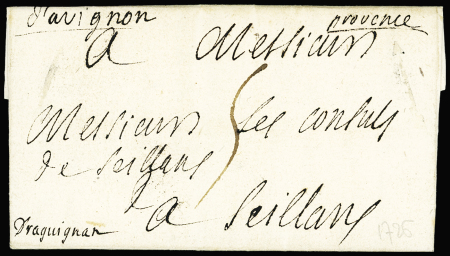 d'avignon provence
A Messieurs
Messieurs les consuls
de Seillans
a Seillans
Draguignan
1725